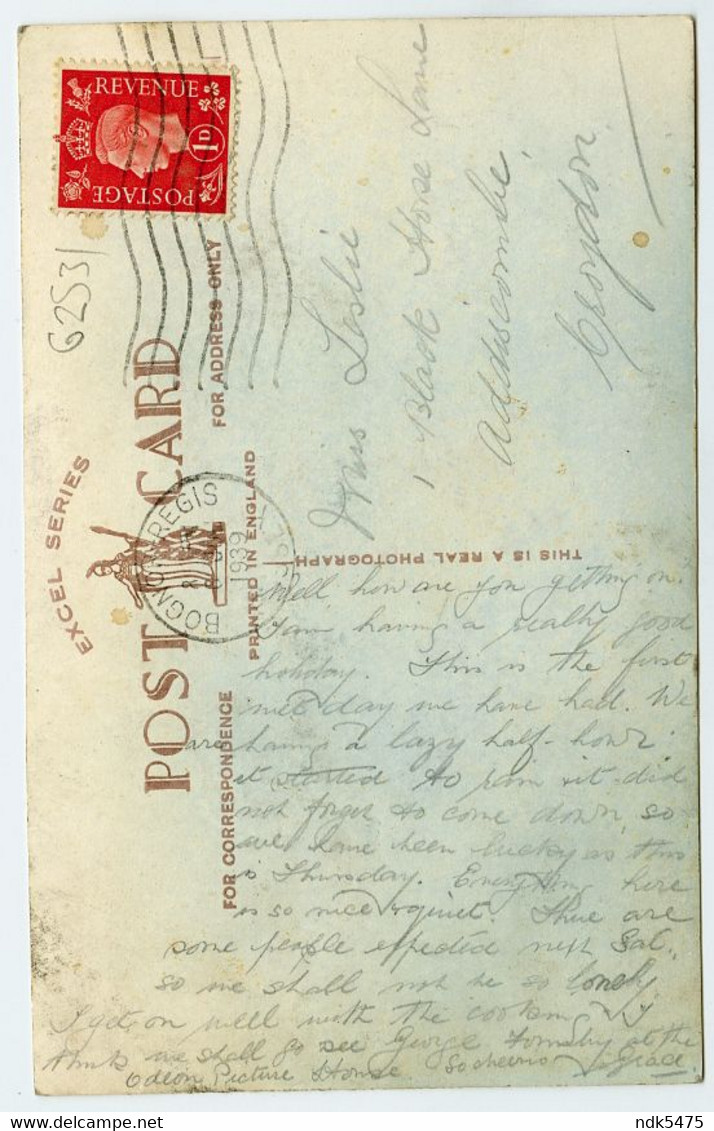 POSTAGE REVENUE
1D
62531
EXCEL SERIES
POST CARD
FOR CORRESPONDENCE
FOR ADDRESS ONLY
PRINTED IN ENGLAND
THIS IS A REAL PHOTOGRAPH
BOGNOR REGIS
1939
Miss Leslie
1 Black Horse Lane
Addiscombe,
Croydon.
Well how are you getting on.
I am having a really good
holiday. This is the first
wet day we have had. We
are having a lazy half-hour.
it started to rain & it did
not forget to come down, so
we have been lucky as this
is Thursday. Everything here
is so nice & quiet. There are
some people expected next Sat.
so we shall not be so lonely
I gets on well with the cooking
think we shall go see George Formby at the
Odeon Picture House. So cheerio Grace.
ndk5475